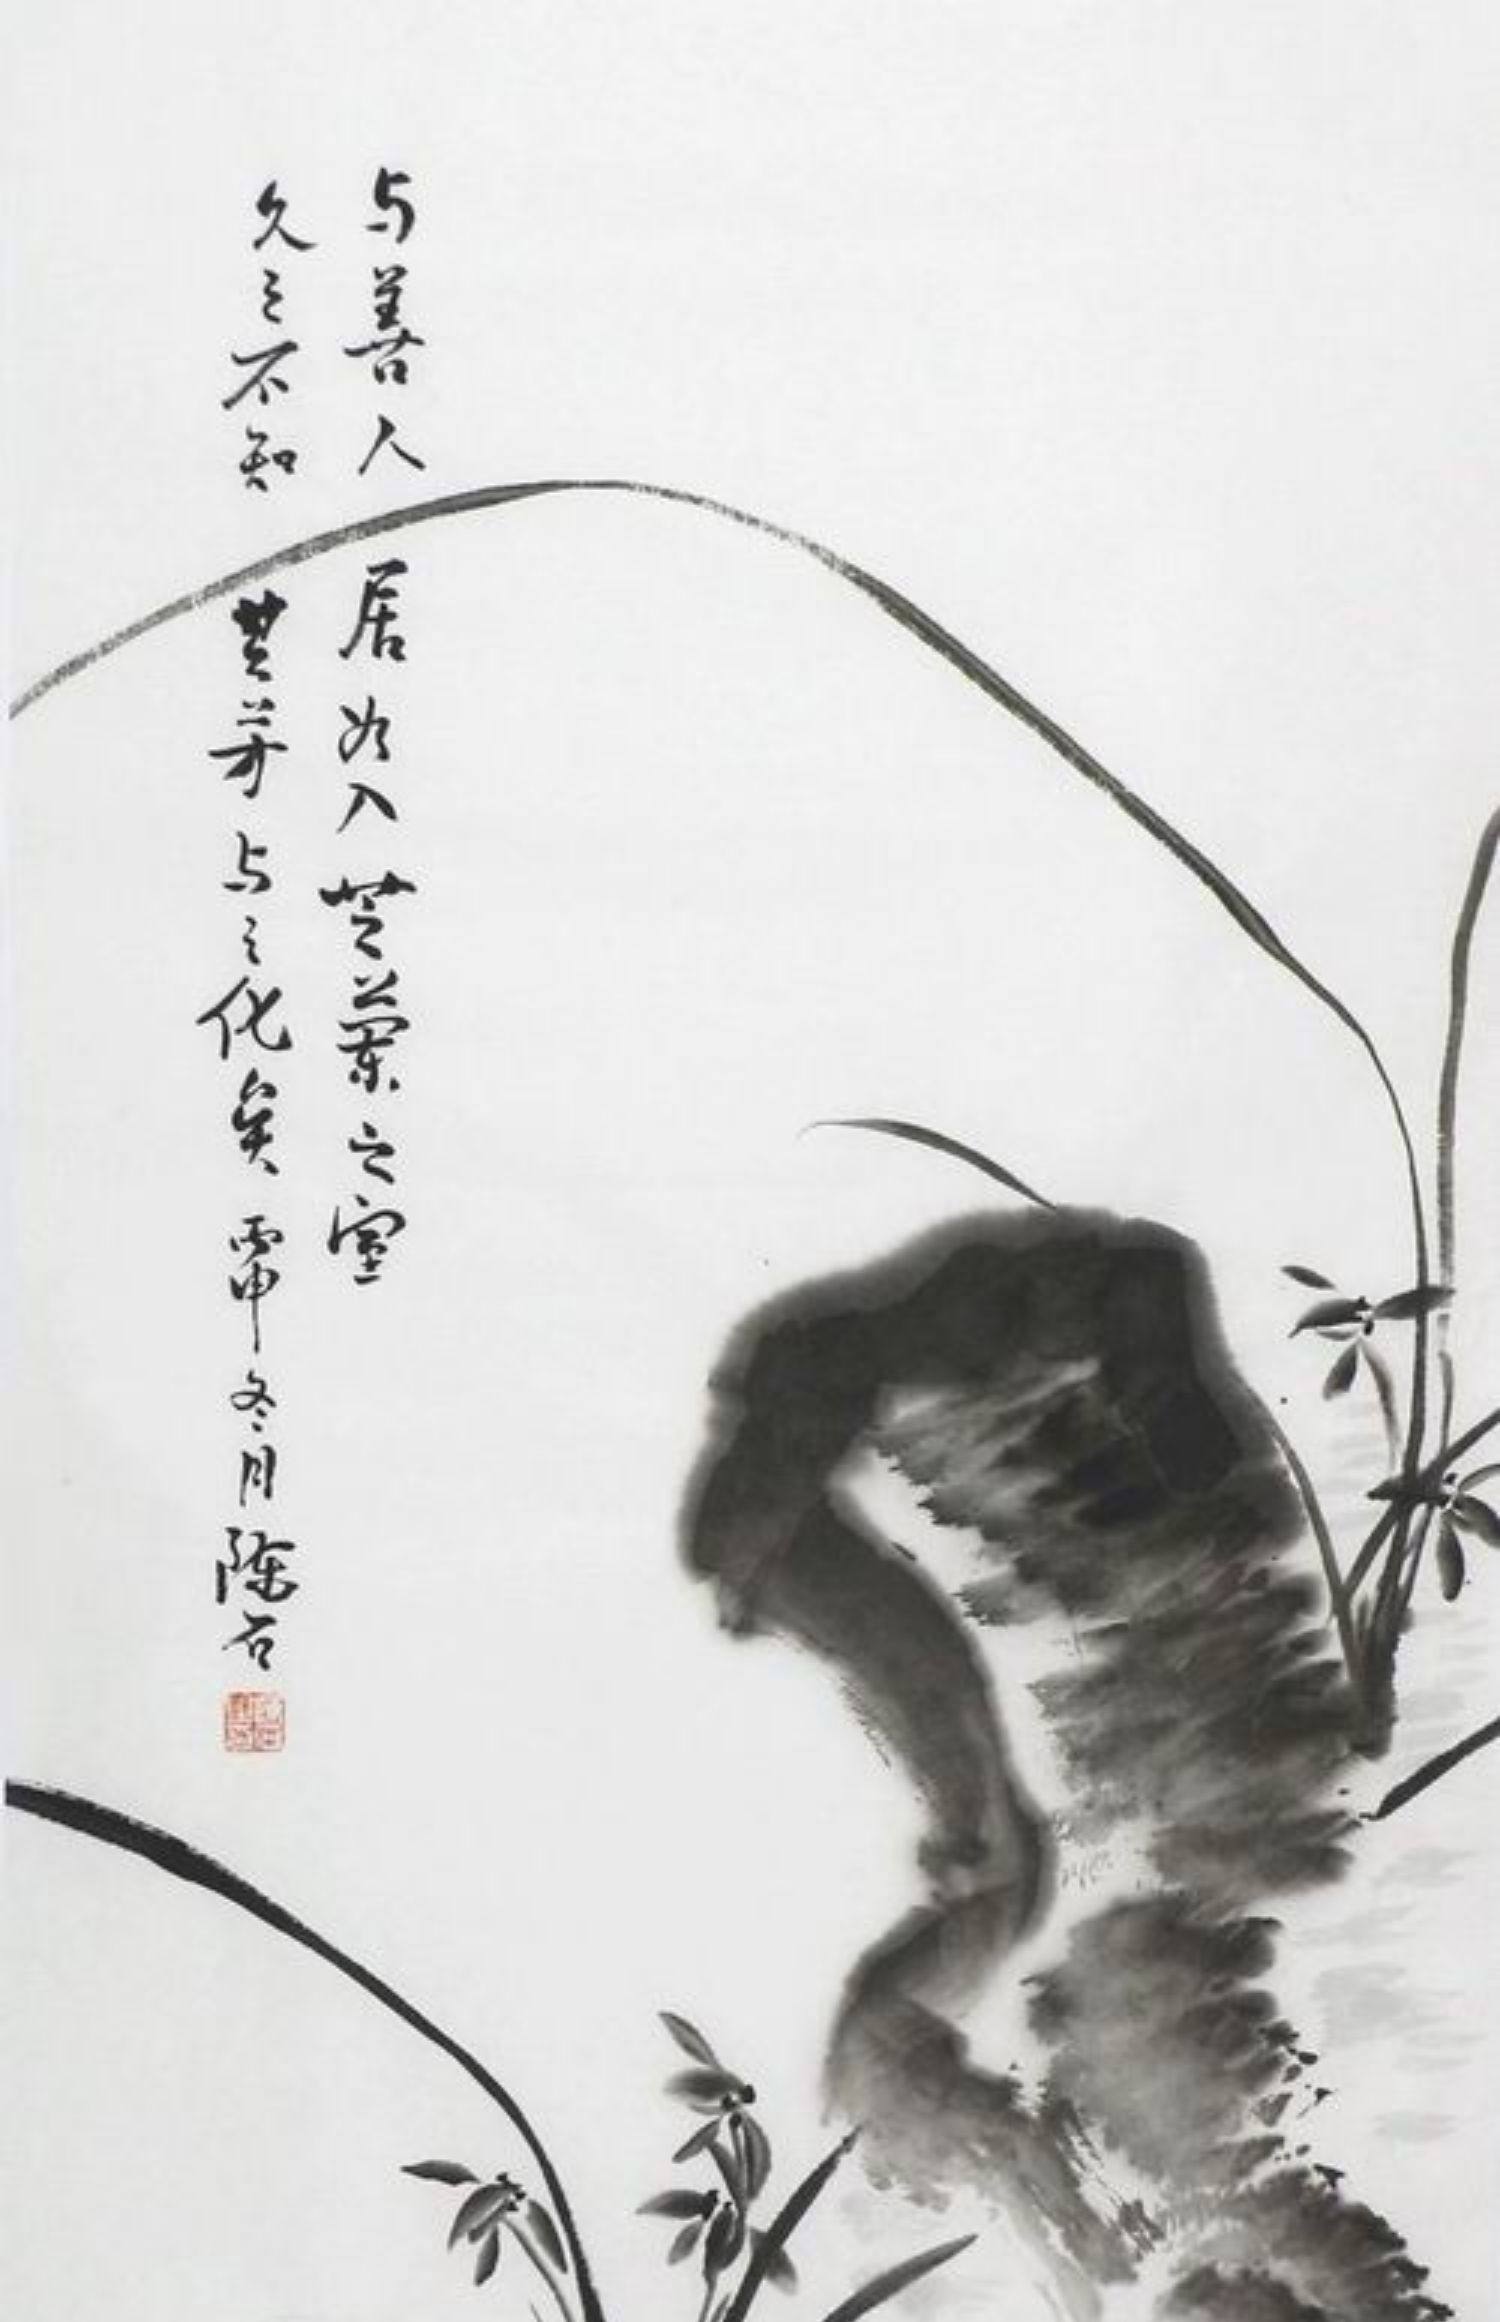 与善人居如入芝蘭之室
久之不知其芳与之化矣丙申冬月陈石